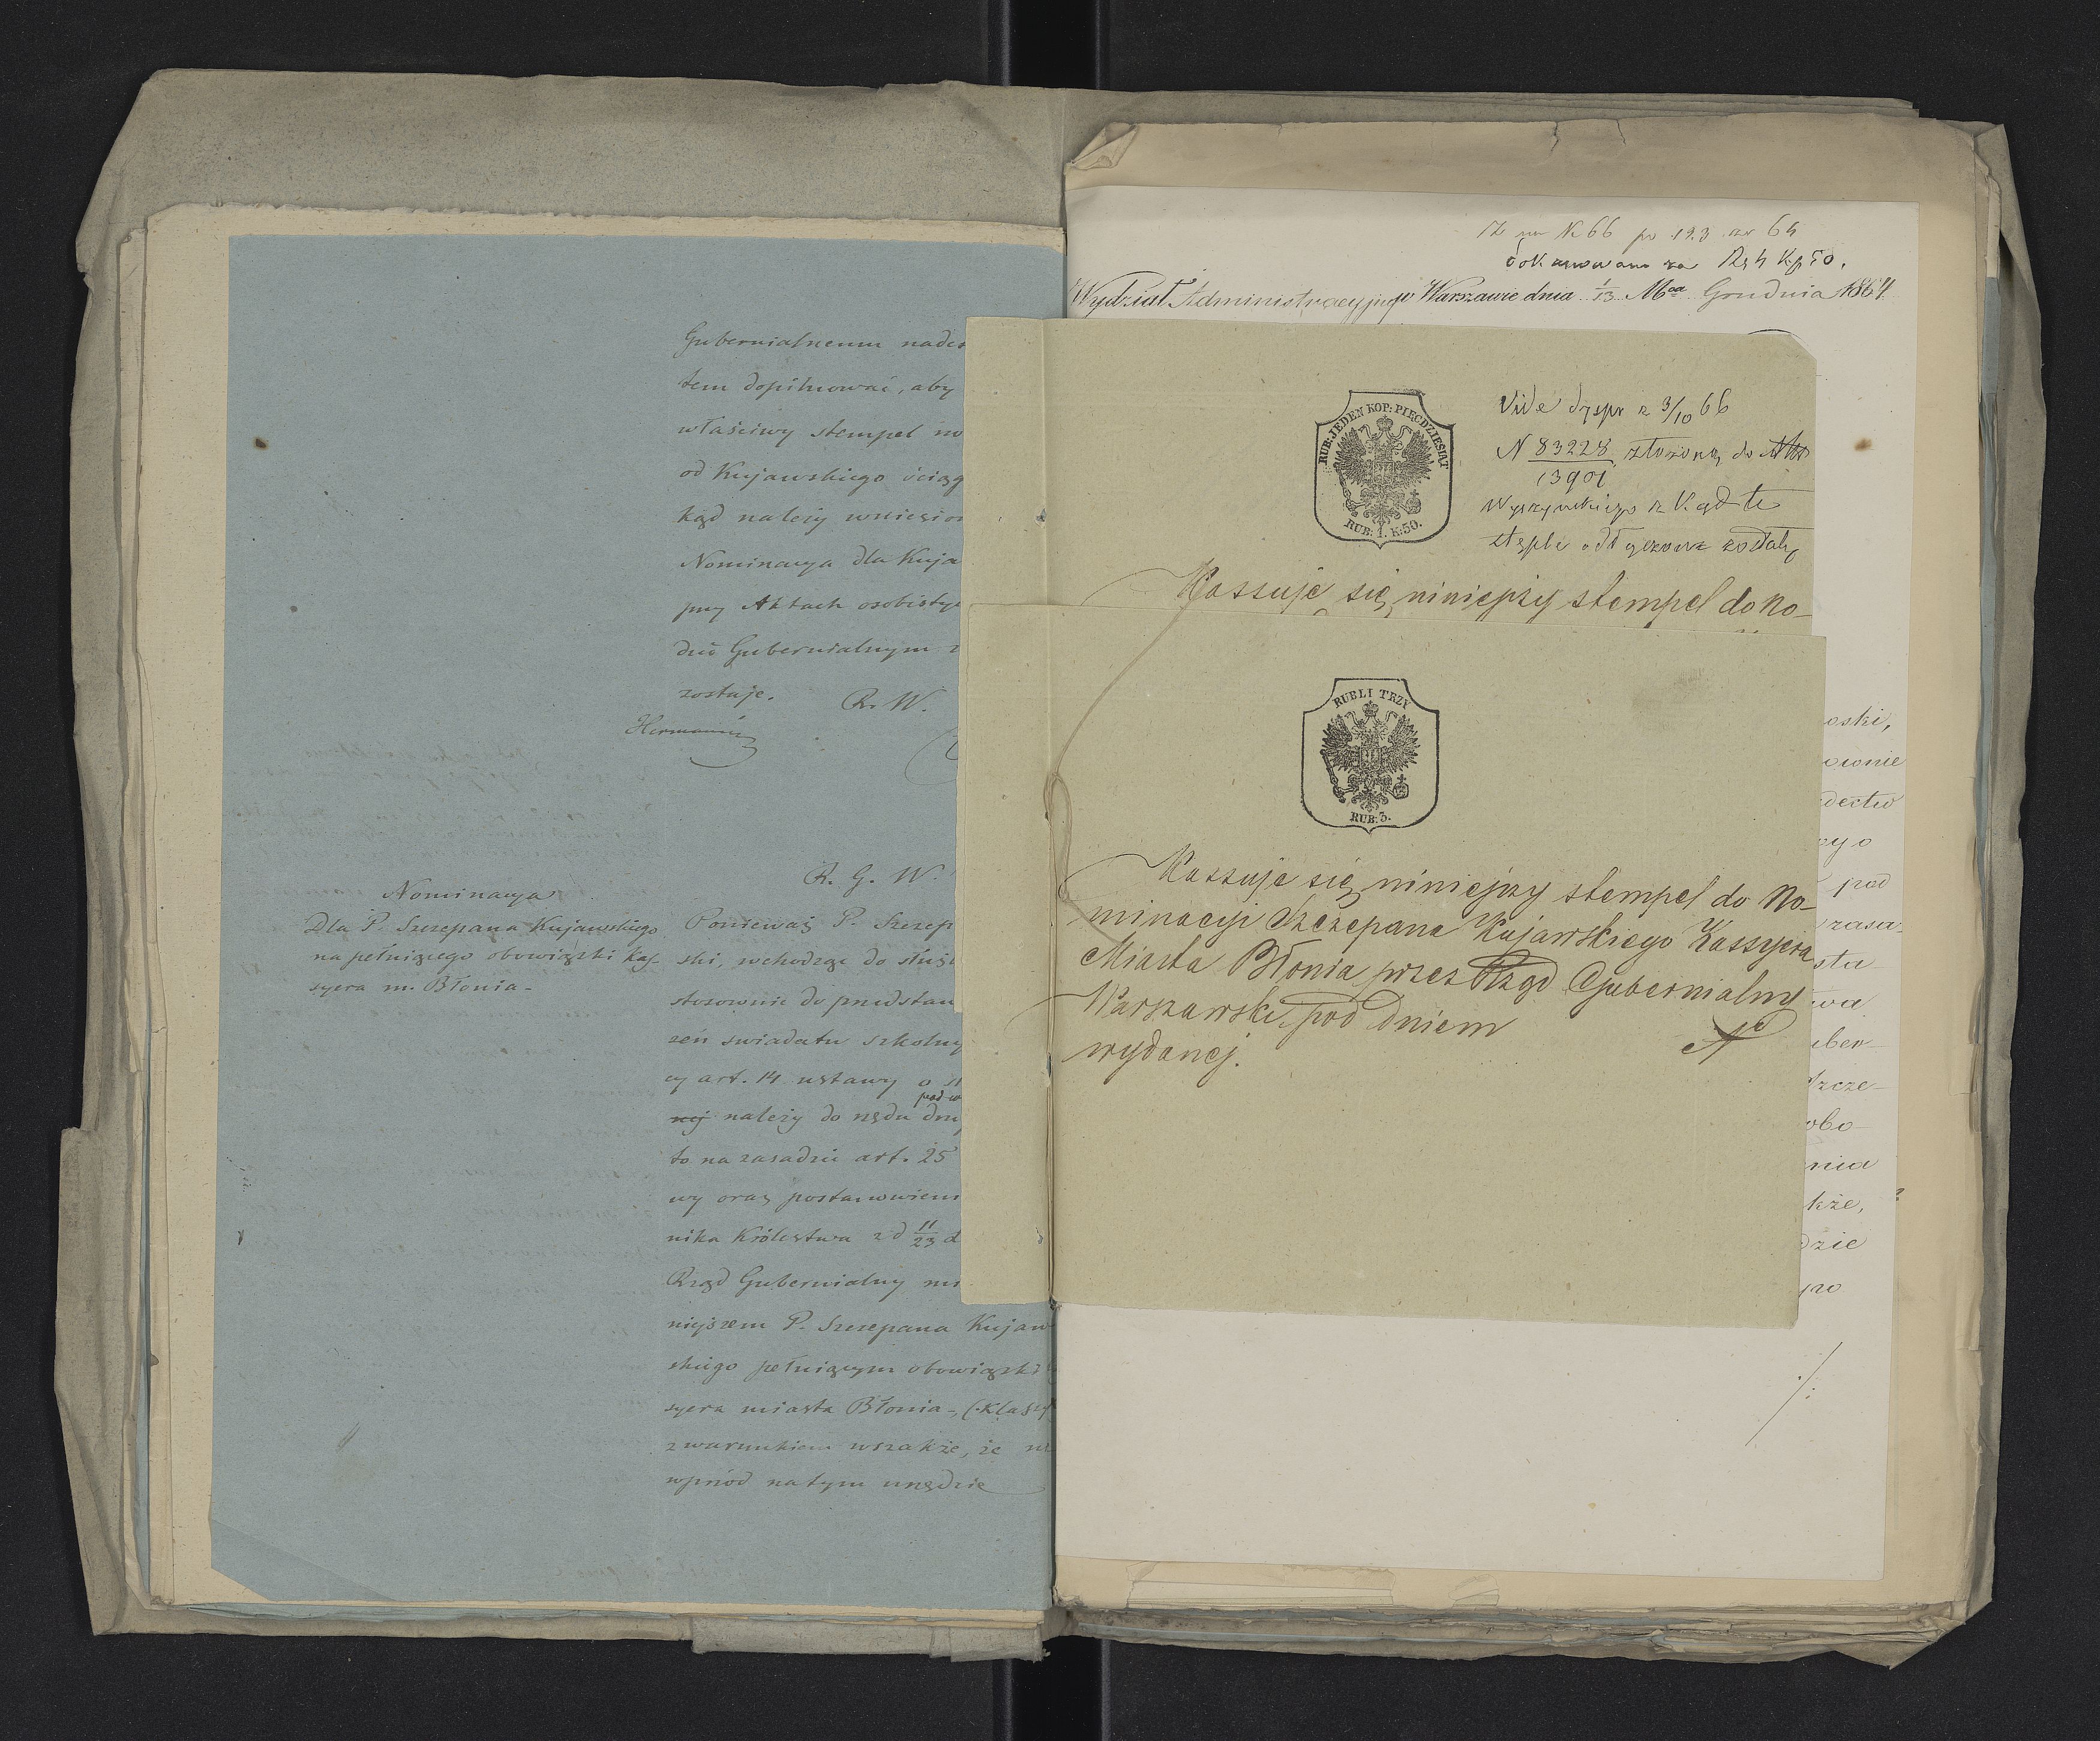 Gubernialnemu nades
tem dopilnować, aby
właściwy stempel no
od Kujawskiego ściąg
kąd należy wniesion
Nominacya dla Kuja
przy Aktach osobisty
dzie Gubernialnym
zostaje. R. W.
Hermann
R. G. W.
Nominacya
Dla P. Szczepana Kujawskiego
na pełniącego obowiązki Kas-
syera m. Błonia-
Ponieważ P. Szczep
ski, wchodząc do służ
stosownie do przedstaw
zeń swiadectw szkolny
cy art. 14 ustawy o
nej należy do rzędu dru
to na zasadzie art. 25
wy oraz postanowieni
nika Królestwa z d 11/23 d
Rząd Gubernialny
niejszem P. Szczepana Kujaw
skiego pełniącym obowiązki
syera miasta Błonia-, (Klassy
z warunkiem wszakże, że
wprzód na tym urzędzie
na N 66 po 193 64
Wydział Administracyjny w Warszawie dnia 1/13 Mca Grudnia 1864
RUB: JEDEN KOP: PIĘĆDZIESIĄT
RUB: 1. K: 50.
Vide dyspr z 3/10 66
N 83228/13901 złożoną do
Wyszynskiego z Kąd te
stęple odłączone zostały
Kassuje się niniejszy stempel do No-
RUBLI TRZY
RUB: 3.
Kassuje się niniejszy stempel do No-
minacyi Szczepana Kujawskiego Kassyera
Miasta Błonia przez Rząd Gubernialny
Warszawski pod dniem
wydanej.
oski,
dectw
pod
zasa-
sta
wa
uber-
zcze-
obo-
nia
kże,
dzie